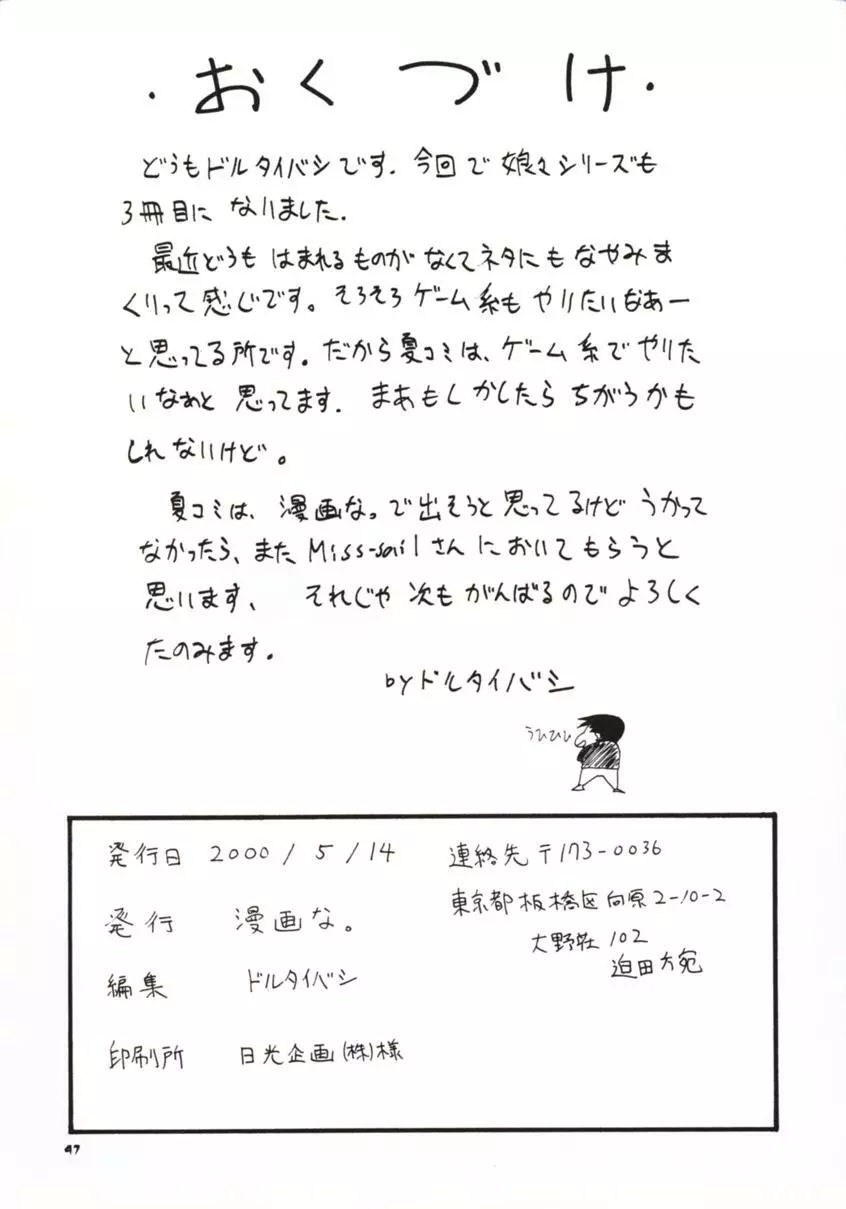 ・おくづけ・
どうもドルタイバシです. 今回で娘々シリーズも
3冊目に なりました.
最近どうも はまれるものが なくてネタにも なやみま
くりって 感じです。そろそろ ゲーム系も やりたいなあー
と思ってる所です。だから夏コミは、ゲーム系でやりた
いなぁと 思ってます. まあもしかしたら ちがうかも
しれないけど。
夏コミは、漫画な。で出そうと思ってるけど うかって
なかったら、また Miss-sailさん においてもらうと
思います、 それじゃ 次も がんばるので よろしく
たのみます。
byドルタイバシ
うひひひ
発行日 2000 / 5 / 14
発行 漫画な。
編集 ドルタイバシ
印刷所 日光企画(株)様
連絡先 〒173-0036
東京都板橋区向原2-10-2
大野荘 102
迫田方宛
47